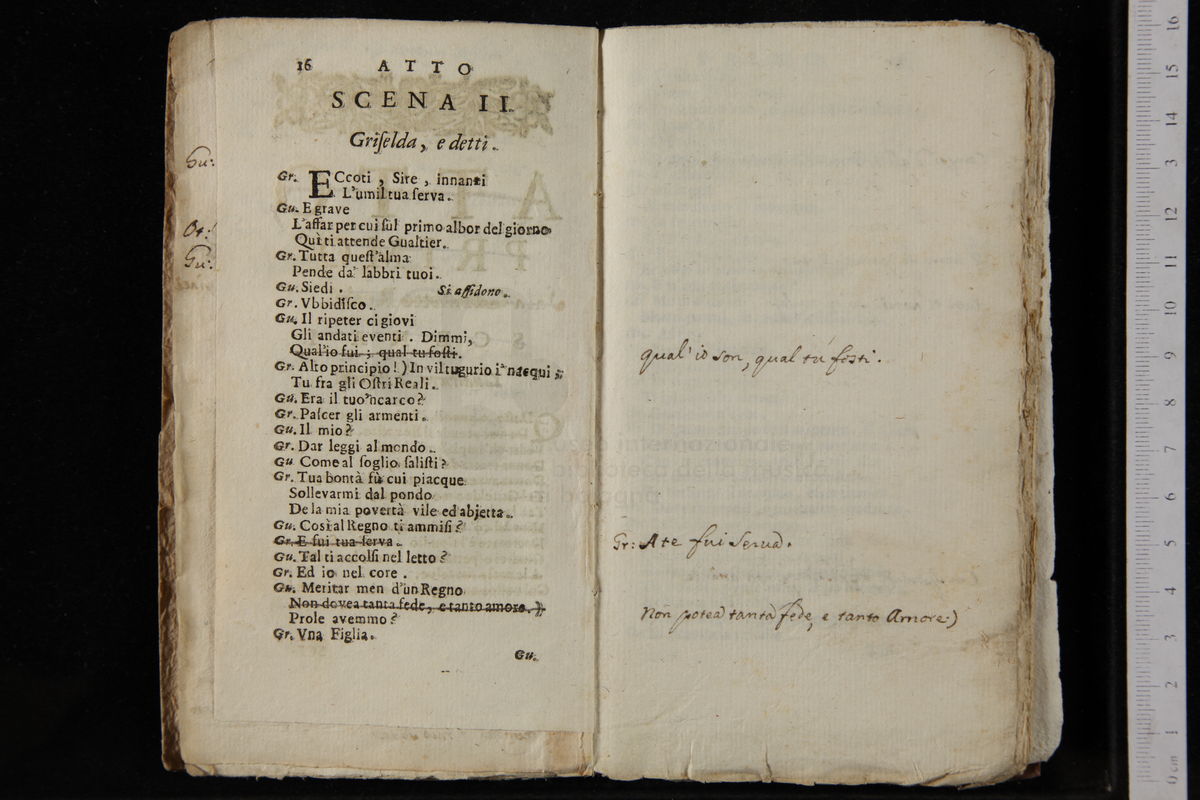 16 ATTO
SCENA II.
Griſelda, e detti.
Gr. ECcoti, Sire, innanti
L'umil tua ſerva.
Gu. E grave
L'affar per cui ſul primo albor del giorno
Quì ti attende Gualtier.
Gr. Tutta queſt'alma
Pende da' labbri tuoi.
Gu. Siedi. Si aſſidono.
Gr. Vbbidiſco.
Gu. Il ripeter ci giovi
Gli andati eventi. Dimmi,
Qual'io fui; qual tu foſti.
Gr. Alto principio!) In vil tugurio i' nacqui;
Tu fra gli Oſtri Reali.
Gu. Era il tuo'ncarco?
Gr. Paſcer gli armenti.
Gu. Il mio?
Gr. Dar leggi al mondo.
Gu Come al ſoglio ſaliſti?
Gr. Tua bontà fù cui piacque
Sollevarmi dal pondo
De la mia povertà vile ed abjetta.
Gu. Così al Regno ti ammiſi?
Gr. E fui tua ſerva.
Gu. Tal ti accolſi nel letto?
Gr. Ed io nel core.
Gu. Meritar men d'un Regno
Non dovea tanta fede, e tanto amore.)
Prole avemmo?
Gr. Vna Figlia.
Gu.
Gu:
Ot:
Gu:
qual' io son, qual tu fosti.
Gr: A te fui Serva.
Non potea tanta fede, e tanto Amore)
museo internazionale
biblioteca della musica
di bologna